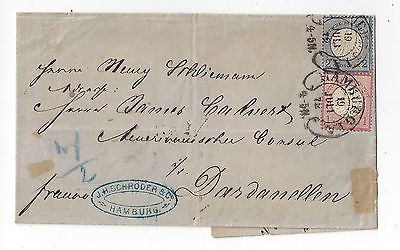 Herrn Henry Schliemann
Adresse:
Herrn James Calvert
Amerikanischer Consul
Dardanellen
franco
J. H. SCHRÖDER & Co.
HAMBURG.
HAMBURG
19
JULI